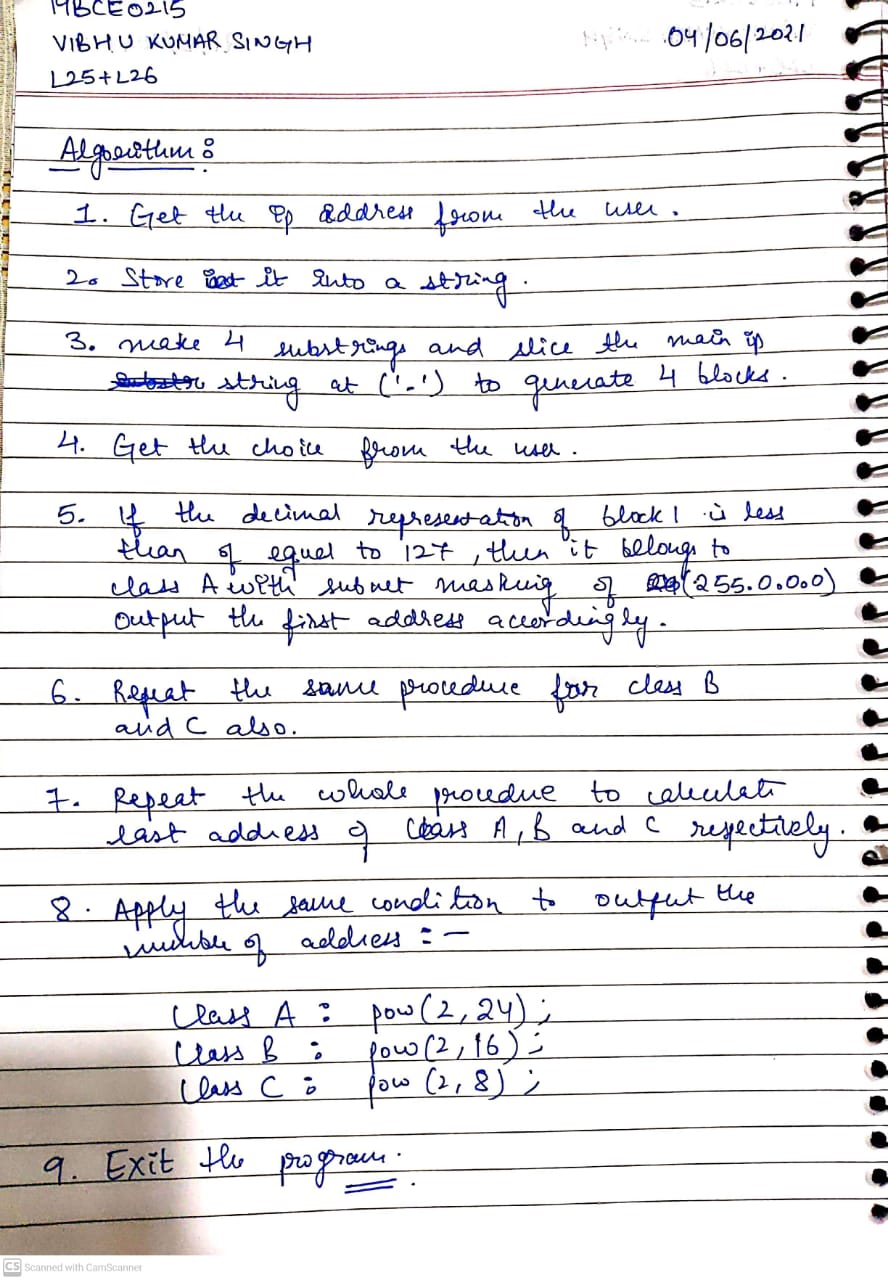 19BCE0215
VIBHU KUMAR SINGH
04/06/2021
L25+L26
Algorithm :
1. Get the Ip address from the user.
2. Store it into a string.
3. make 4 substrings and slice the main ip
string at ('.') to generate 4 blocks.
4. Get the choice from the user.
5. If the decimal representation of block 1 is less
than of equal to 127, then it belongs to
class A with subnet masking of (255.0.0.0)
Output the first address accordingly.
6. Repeat the same procedure for class B
and C also.
7. Repeat the whole procedue to calculate
last address of Class A, B and C respectively.
8. Apply the same condition to output the
number of address :-
Class A : pow(2,24);
Class B : pow(2,16);
Class C : pow(2,8);
9. Exit the program.
CS Scanned with CamScanner